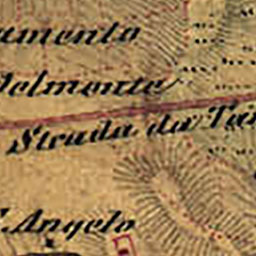 amento
Delmonte
Strada da Ta
S. Angelo